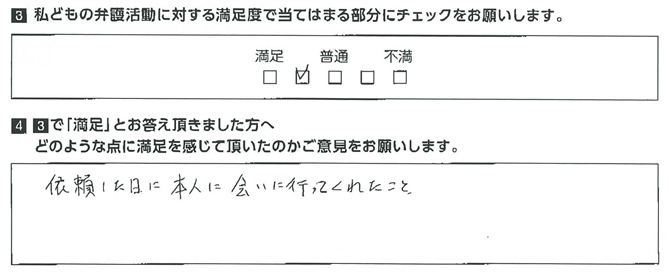 3 私どもの弁護活動に対する満足度で当てはまる部分にチェックをお願いします。
満足 普通 不満
□ ☑ □ □ □
4 3で「満足」とお答え頂きました方へ
どのような点に満足を感じて頂いたのかご意見をお願いします。
依頼した日に本人に会いに行ってくれたこと